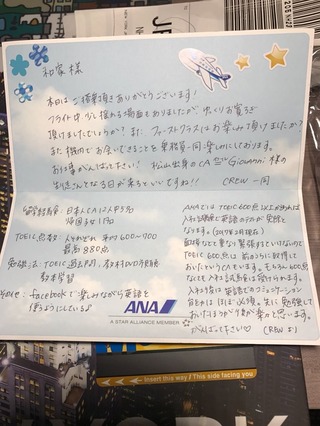 和家 様
本日はご搭乗頂きありがとうございます!
フライト中、少し揺れる場面もありましたが、ゆっくりお寛ぎ
頂けましたでしょうか? また、ファーストクラスはお楽しみ頂けましたか?
また機内でお会いできることを乗務員一同楽しみにしております。
お仕事がんばって下さい! 松山出身のCA Giovanni 様の
生徒さんとなる日が来るといいですね!! CREW一同
留学経験者:日本人CA12人中5名
帰国子女1名
TOEIC点数:人それぞれ 平均600~700
最高880点
勉強法:TOEIC過去問、教材DVD
基本学習
その他:facebookで楽しみながら英語を
使うようにしている♪
ANAではTOEIC600点以上があれば
入社試験で英語のテストが免除と
なります。(2017年2月現在)
面接などと重なり緊張するといけないので
TOEIC600点は前もって取得して
おいたというCAもいます。もちろん600点
なくても入社試験を受けられます。
入社後は英語でのコミュニケーション
勉強して
おいたほうが後が楽かと思います。
がんばって下さい♡ (CREWより)
ANA
A STAR ALLIANCE MEMBER
Insert this way / This side facing you